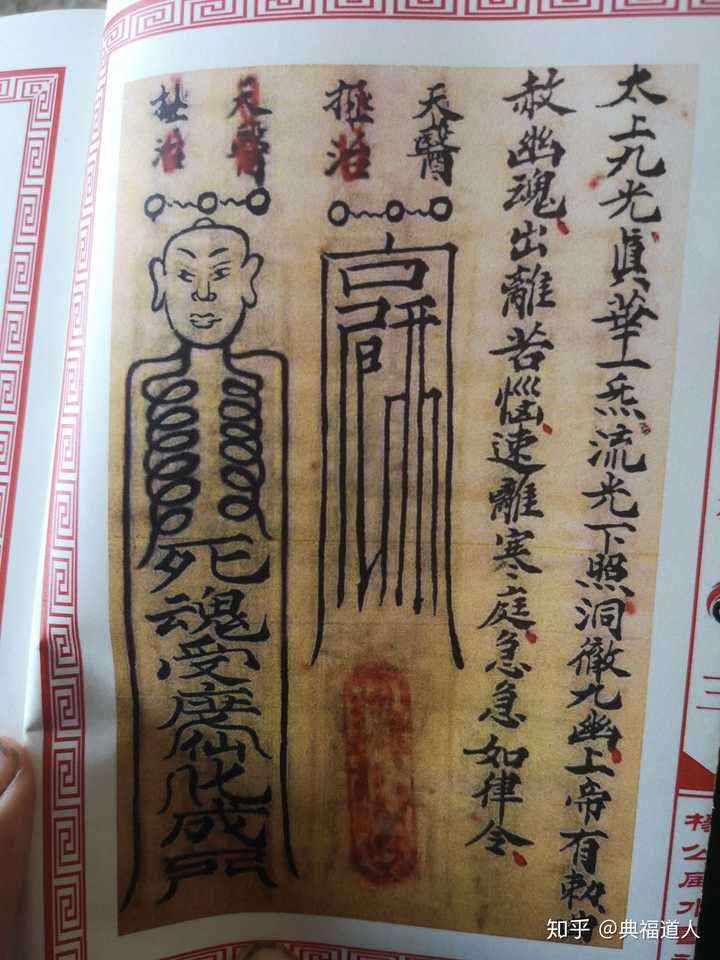 太上九光眞華一炁流光下照洞徹九幽上帝有敕
赦幽魂出離苦惱速離寒庭急急如律令
天醫
拯治
天醫
拯治
死魂受度仙化成
三
知乎 @典福道人